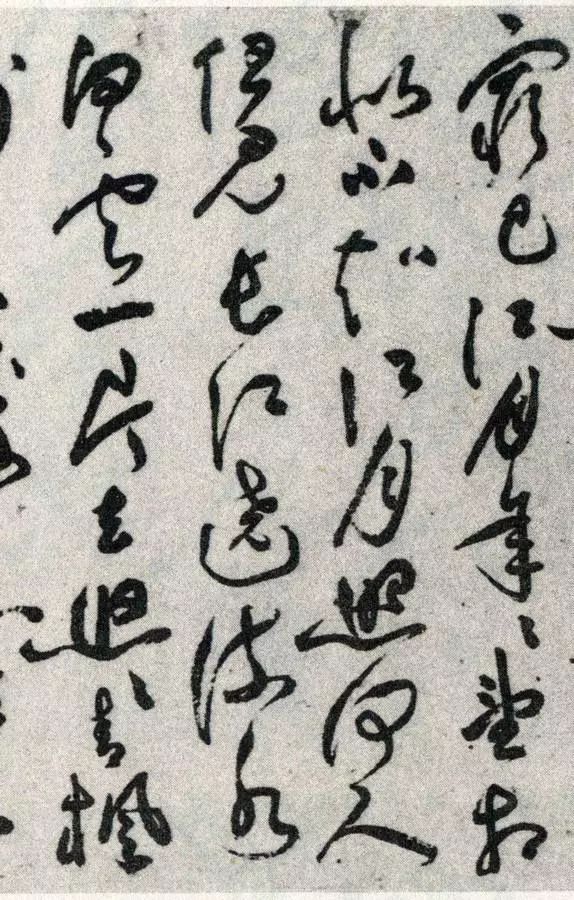 窮已江月年〻望相
似不知江月照何人
但見長江送流水
白雲一片去悠〻青楓